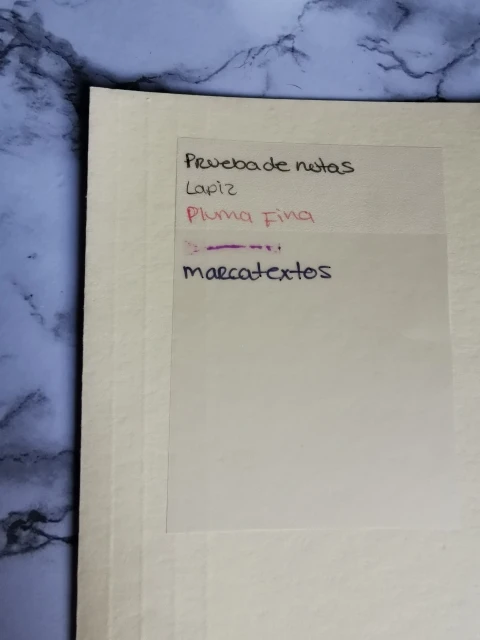 Prueba de notas
Lapiz
Pluma Fina
marcatextos